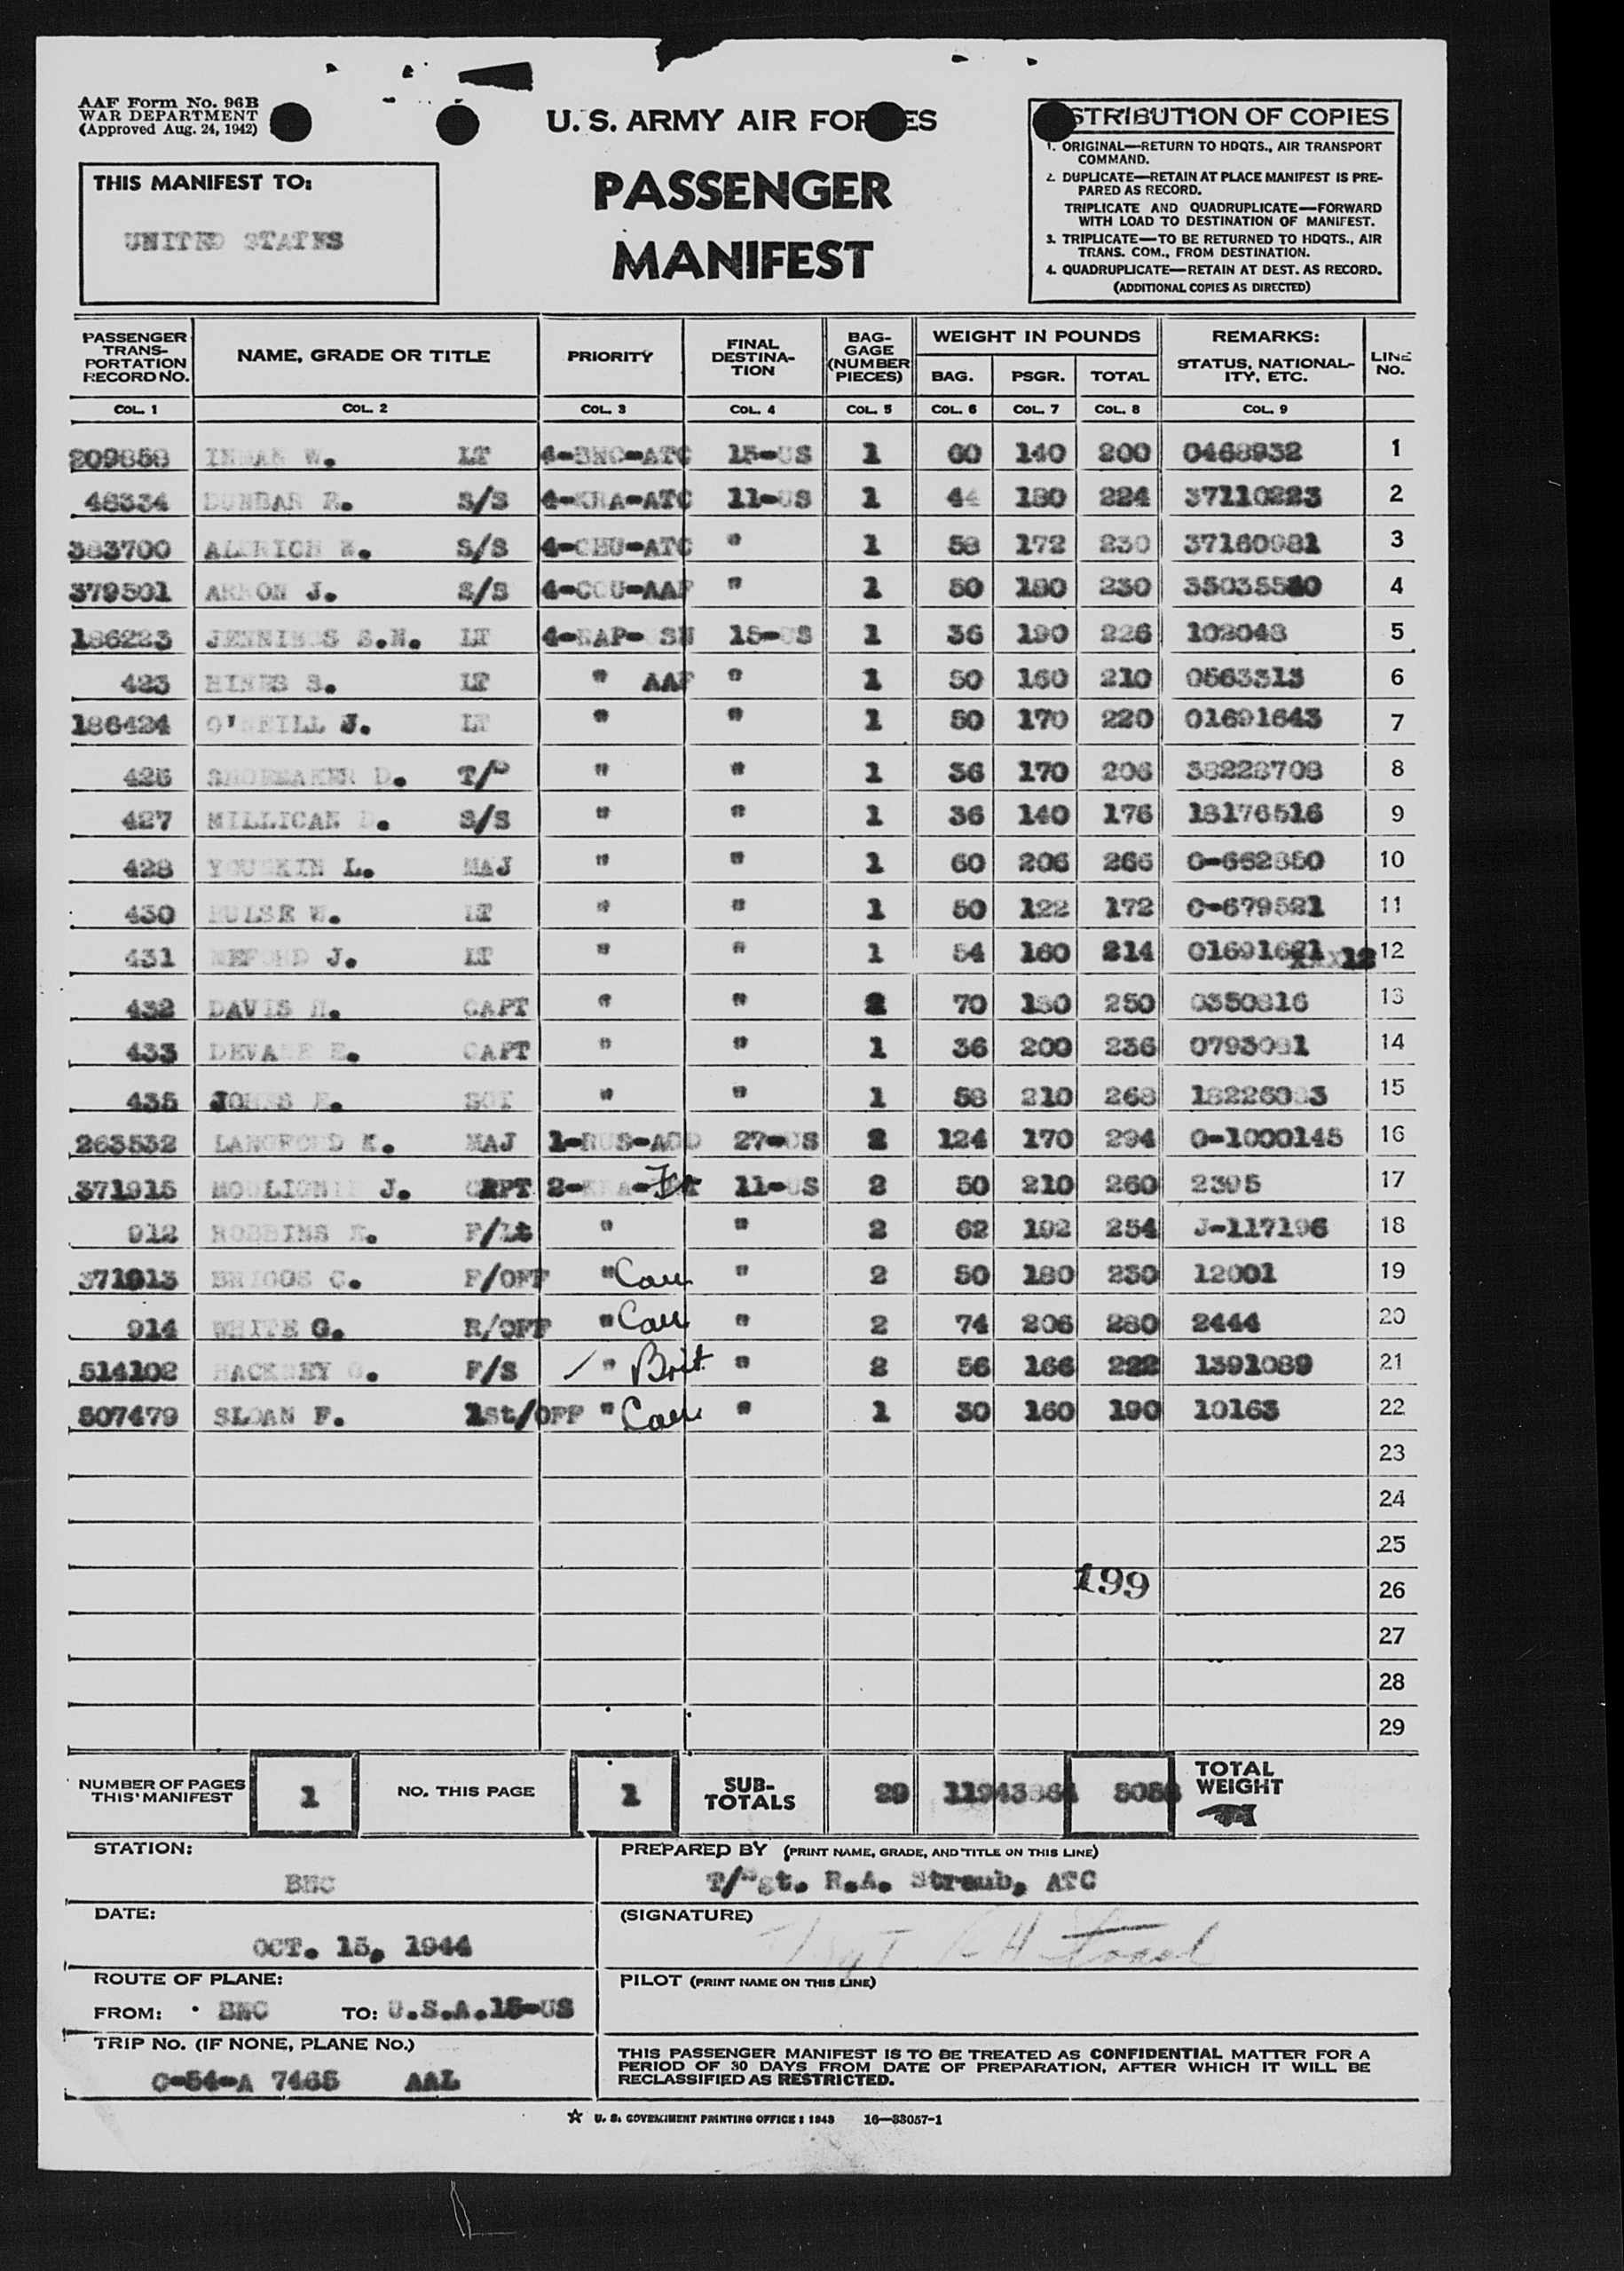 AAF Form No. 96B
WAR DEPARTMENT
(Approved Aug. 24, 1942)
U. S. ARMY AIR FORCES
PASSENGER
MANIFEST
THIS MANIFEST TO:
UNITED STATES
DISTRIBUTION OF COPIES
1. ORIGINAL—RETURN TO HDQTS., AIR TRANSPORT
COMMAND.
2. DUPLICATE—RETAIN AT PLACE MANIFEST IS PRE-
PARED AS RECORD.
TRIPLICATE AND QUADRUPLICATE—FORWARD
WITH LOAD TO DESTINATION OF MANIFEST.
3. TRIPLICATE—TO BE RETURNED TO HDQTS., AIR
TRANS. COM., FROM DESTINATION.
4. QUADRUPLICATE—RETAIN AT DEST. AS RECORD.
(ADDITIONAL COPIES AS DIRECTED)
PASSENGER TRANS- PORTATION RECORD NO. NAME, GRADE OR TITLE PRIORITY FINAL DESTINA- TION BAG- GAGE (NUMBER PIECES) WEIGHT IN POUNDS BAG. PSGR. TOTAL REMARKS: STATUS, NATIONAL- ITY, ETC. LINE NO.
COL. 1 COL. 2 COL. 3 COL. 4 COL. 5 COL. 6 COL. 7 COL. 8 COL. 9
209858 INMAN W. LT 4-BNC-ATC 15-US 1 60 140 200 0468932 1
48334 DUNBAR R. S/S 4-KRA-ATC 11-US 1 44 180 224 37110223 2
383700 S/S 4-CHU-ATC " 1 58 172 230 37160981 3
379501 J. S/S 4-CCU-AAF " 1 50 180 230 4
186223 JENNINGS S.N. LT 4-NAP- SN 15-US 1 36 190 226 102043 5
423 HINES S. LT " AAF " 1 50 160 210 0563313 6
186424 O'NEILL J. LT " " 1 50 170 220 01691643 7
426 SHOEMAKER D. " " 1 36 170 206 38228708 8
427 MILLICAN S/S " " 1 36 140 176 18176516 9
428 L. MAJ " " 1 60 206 266 10
430 HULSE W. LT " " 1 50 122 172 O-679521 11
431 J. LT " " 1 54 160 214 12 12
432 DAVIS H. CAPT " " 2 70 180 250 0350816 13
433 CAPT " " 1 36 200 236 14
435 JONES SGT " " 1 58 210 268 15
263532 LANGFORD K. MAJ 1-RUS-ACD 27-US 2 124 170 294 O-1000145 16
371915 J. CAPT 11-US 2 50 210 260 2395 17
912 ROBBINS F/Lt " " 2 62 192 254 J-117196 18
371913 BRIGGS C. F/OFF " Can " 2 50 180 230 12001 19
914 WHITE G. R/OFF " Can " 2 74 206 280 2444 20
514102 HACKNEY F/S " Brit " 2 56 166 222 1391089 21
507479 SLOAN F. 1st/OFF " Can " 1 30 160 190 10163 22
23
24
25
199 26
27
28
29
NUMBER OF PAGES THIS MANIFEST 1 NO. THIS PAGE 1 SUB- TOTALS 29 1194 3864 5058 TOTAL WEIGHT
STATION:
BNC
PREPARED BY (PRINT NAME, GRADE, AND TITLE ON THIS LINE)
T/Sgt. R.A. Straub, ATC
DATE:
OCT. 15, 1944
(SIGNATURE)
ROUTE OF PLANE:
FROM: BNC TO: U.S.A. 15-US
PILOT (PRINT NAME ON THIS LINE)
TRIP NO. (IF NONE, PLANE NO.)
C-54-A 7465 AAL
THIS PASSENGER MANIFEST IS TO BE TREATED AS CONFIDENTIAL MATTER FOR A
PERIOD OF 30 DAYS FROM DATE OF PREPARATION, AFTER WHICH IT WILL BE
RECLASSIFIED AS RESTRICTED.
☆ U. S. GOVERNMENT PRINTING OFFICE : 1943 16—33057-1